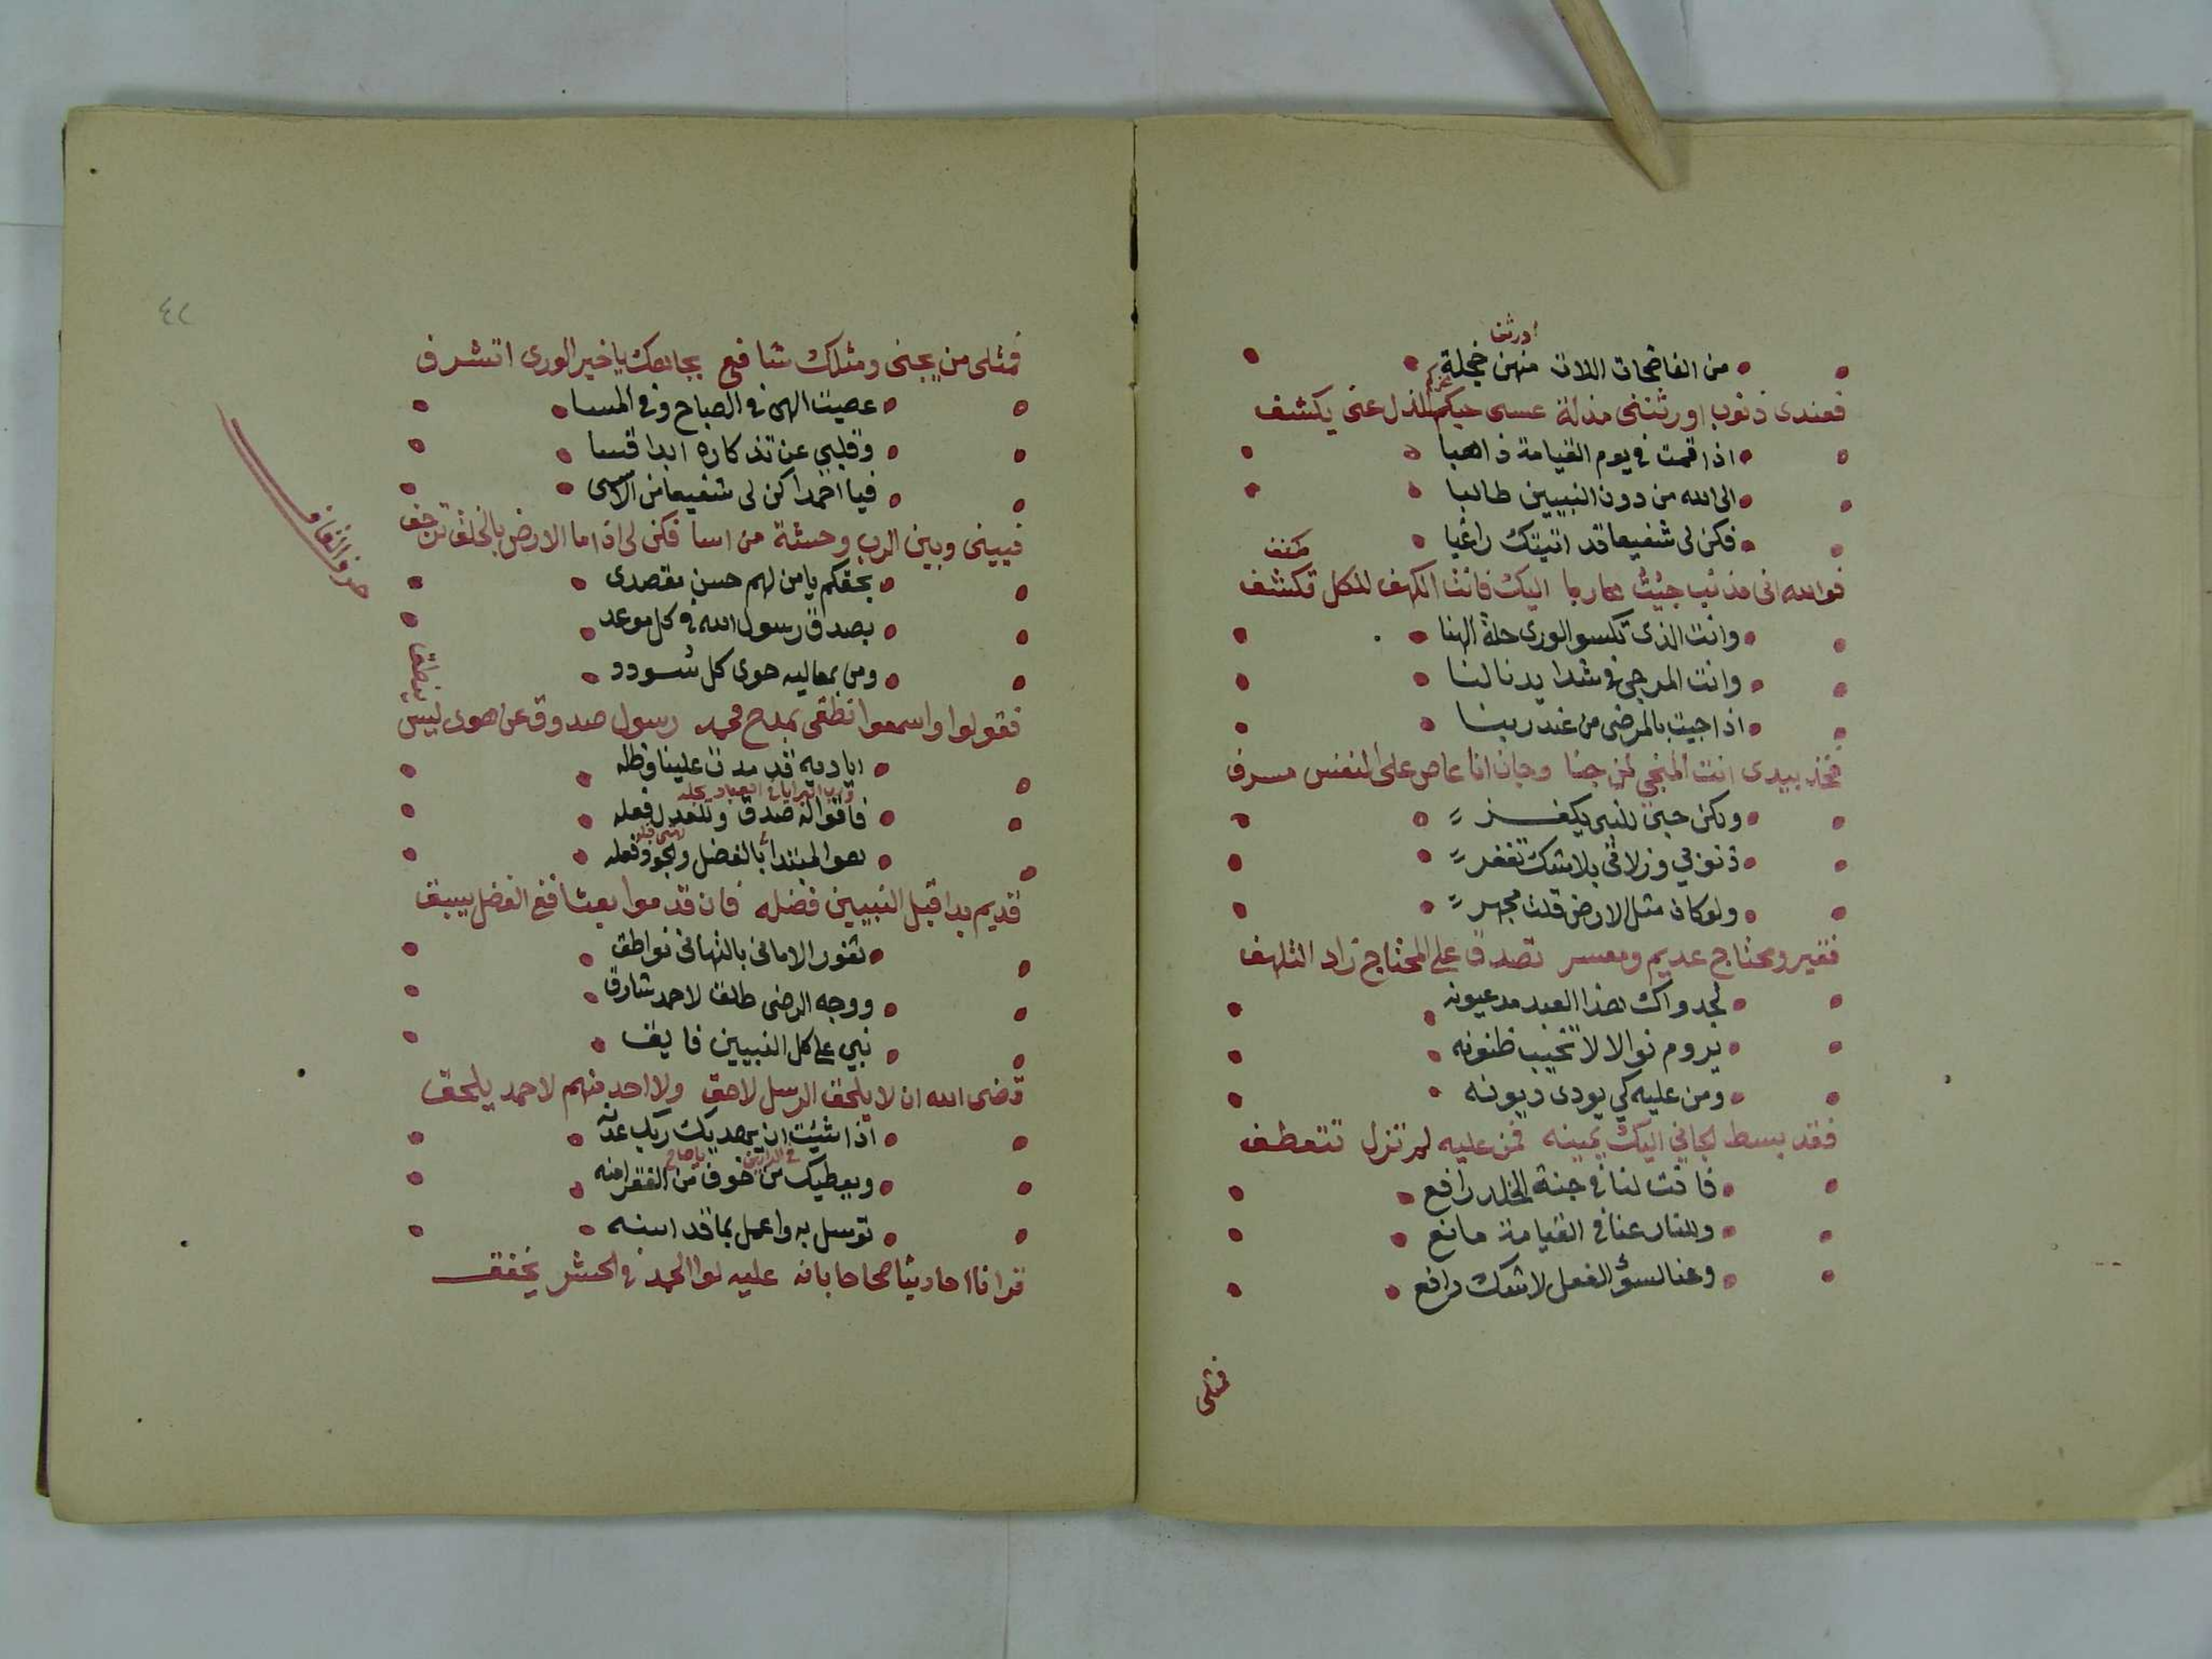 اورثن
من الفاضحات اللات منهن خجلة
فعندى ذنوب اورثتنى مذلة عسى حبكم الذل عنى يكشف
اذا قمت في يوم القيامة ذاهبا
الى الله من دون النبيين طالبا
فكن لى شفيعا قد اتيتك راغبا
فوالله انى مذنب جئيتُ هاربا اليك فانت الكهف للكل تكشف
وانت الذى تكسو الورى حلة الهنا
وانت المرجى في شدايدنا لنا
اذا جيت بالمرضى من عند ربنا
فخذ بيدى انت المنجي لمن جنا وجان انا عاص على النفس مسرف
ولكن حبى للنبى يكفر
ذنوبي وزلاتى بلا شك تغفر
ولو كان مثل الارض قلت مجهر
فقير ومحتاج عديم ومعسر تصدق على المحتاج زاد التلهف
لجدواك هذا العبد مد عيونه
يروم نوالا لا تخيب ظنونه
ومن عليه كي يودى ديونه
فقد بسط الجاني اليك يمينه فمن عليه لم تزل تتعطف
فانت لنا في جنة الخلد رافع
وللنار عنا في القيامة مانع
وعنا لسوء الفعل لا شك دافع
فمثلى
٤٢
فمثلى من يجنى ومثلك شافع بجاهك يا خير الورى اتشرف
عصيت الهى في الصباح وفي المسا
وقلبي عن تذكاره ابدا قسا
فيا احمدا كن لى شفيعا من الاسى
فبينى وبين الرب وحشة من اسا فكن لى اذا ما الارض بالخلق ترجف
حرف القاف
بحقكم يا من لهم حسن مقصدى
بصدق رسول الله في كل موعد
ومن بمعاليه حوى كل سودد
فقولوا واسمعوا نطقى بمدح محمد رسول صدوق عن هوى ليس ينطق
اياديه قد مدت علينا وظله
فاقواله صدق وللعدل فعله
هو المبتدا بالفضل والجود فعله
قديم بدا قبل النبيين فضله فان قدموا بعثا فع الفضل يسبق
ثغور الامانى بالتهانى نواطق
ووجه الرضى طلق لاحمد شارق
نبي على كل النبيين فايق
قضى الله ان لا يلحق الرسل لاحق ولا احد منهم لاحمد يلحق
اذا شيئت ان يهديك ربك عدنه
في الدارين يا صاح
ويعطيك من خوف من الفقر امنه
توسل به واعمل بما قد اسنه
قرانا احاديثا صحاحا بانه عليه لوا الحمد في الحشر يخفق